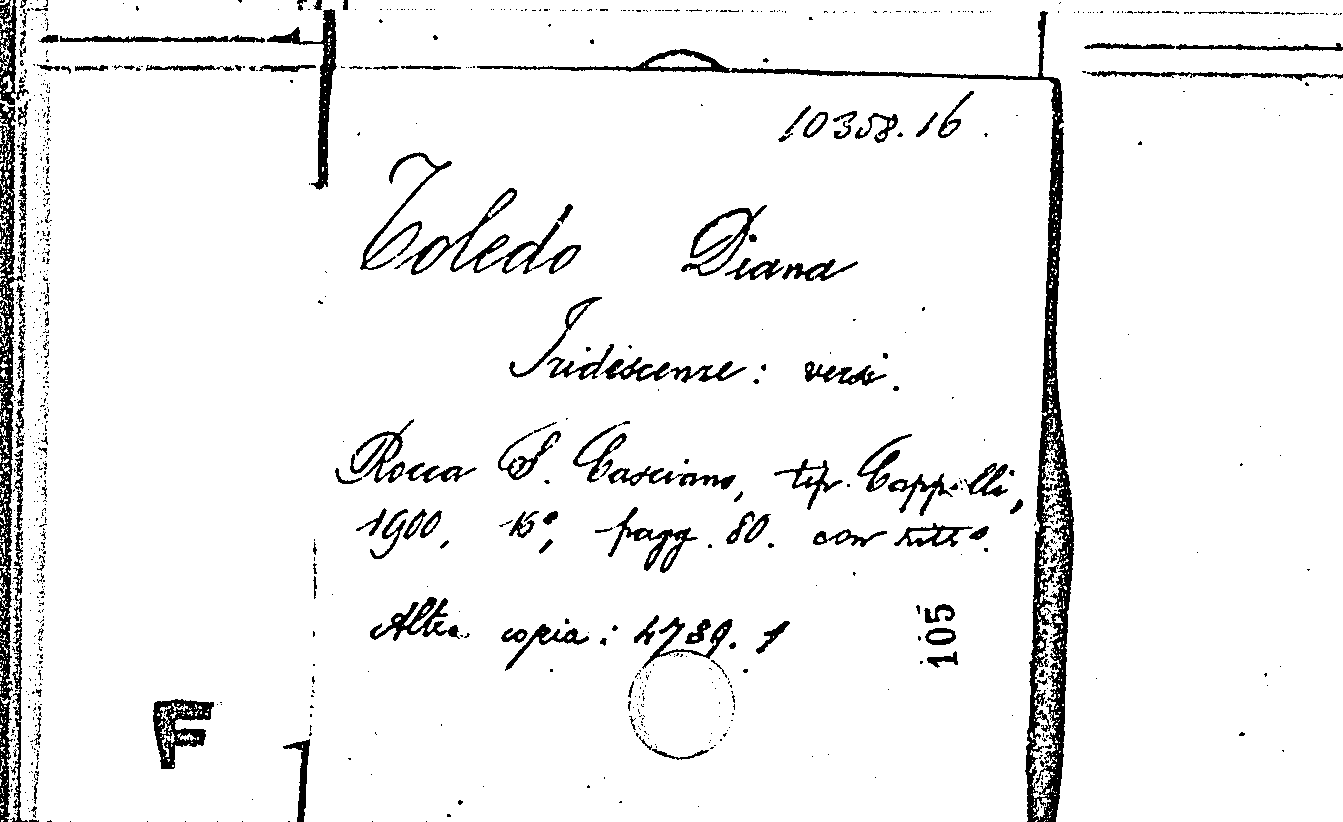 10358.16.
Toledo Diana
Iridescenze: versi.
Rocca S. Casciano, tip. Cappelli,
1900, 16°, pagg. 80. con ritt°.
Altra copia: 4789. 1
105
F